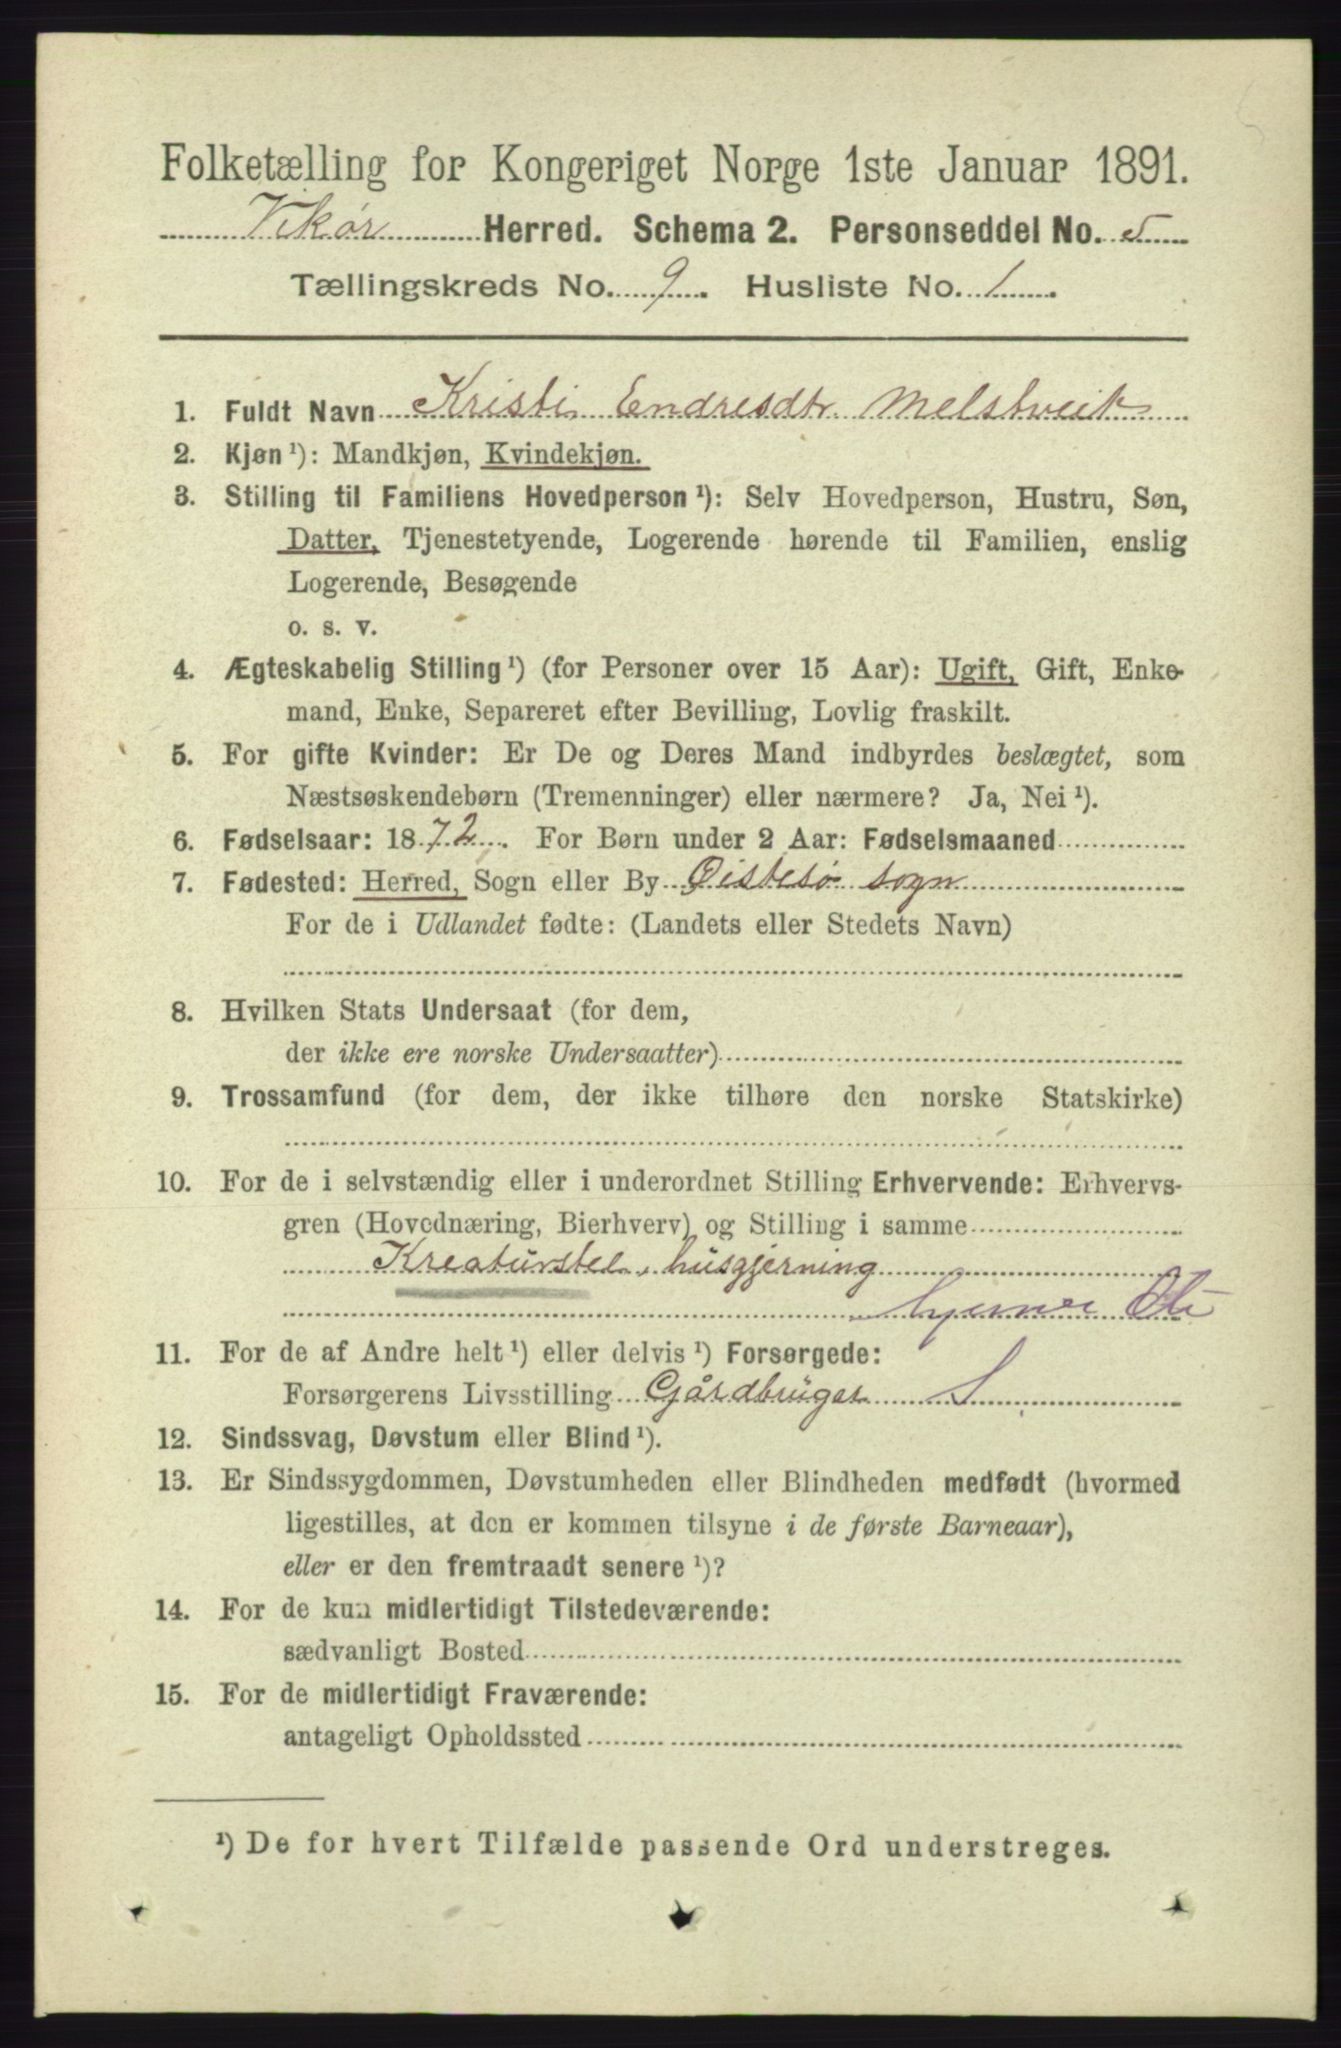 Folketælling for Kongeriget Norge 1ste Januar 1891.
Vikør Herred. Schema 2. Personseddel No. 5
Tællingskreds No. 9. Husliste No. 1.
1. Fuldt Navn Kristi Endresdtr. Melstveit
2. Kjøn ¹): Mandkjøn, Kvindekjøn.
3. Stilling til Familiens Hovedperson ¹): Selv Hovedperson, Hustru, Søn,
Datter, Tjenestetyende, Logerende hørende til Familien, enslig
Logerende, Besøgende
o. s. v.
4. Ægteskabelig Stilling ¹) (for Personer over 15 Aar): Ugift, Gift, Enke-
mand, Enke, Separeret efter Bevilling, Lovlig fraskilt.
5. For gifte Kvinder: Er De og Deres Mand indbyrdes beslægtet, som
Næstsøskendebørn (Tremenninger) eller nærmere? Ja, Nei ¹).
6. Fødselsaar: 1872. For Børn under 2 Aar: Fødselsmaaned
7. Fødested: Herred, Sogn eller By Øistesø sogn
For de i Udlandet fødte: (Landets eller Stedets Navn)
8. Hvilken Stats Undersaat (for dem,
der ikke ere norske Undersaatter)
9. Trossamfund (for dem, der ikke tilhøre den norske Statskirke)
10. For de i selvstændig eller i underordnet Stilling Erhvervende: Erhvervs-
gren (Hovednæring, Bierhverv) og Stilling i samme
Kreaturstel, husgjerning
11. For de af Andre helt ¹) eller delvis ¹) Forsørgede:
Forsørgerens Livsstilling Gårdbruger S
12. Sindssvag, Døvstum eller Blind ¹).
13. Er Sindssygdommen, Døvstumheden eller Blindheden medfødt (hvormed
ligestilles, at den er kommen tilsyne i de første Barneaar),
eller er den fremtraadt senere ¹)?
14. For de kun midlertidigt Tilstedeværende:
sædvanligt Bosted
15. For de midlertidigt Fraværende:
antageligt Opholdssted
¹) De for hvert Tilfælde passende Ord understreges.